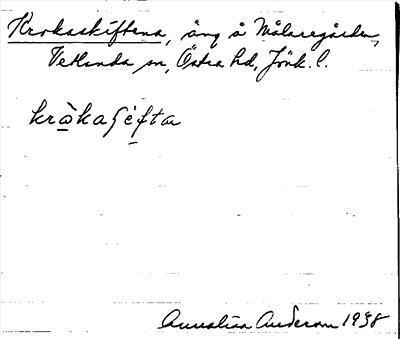 Krokaskiftena, äng å Målaregården,
Vetlanda sn, Östra hd, Jönk. l.
kråkaʃifta
Annalisa Anderson 1938